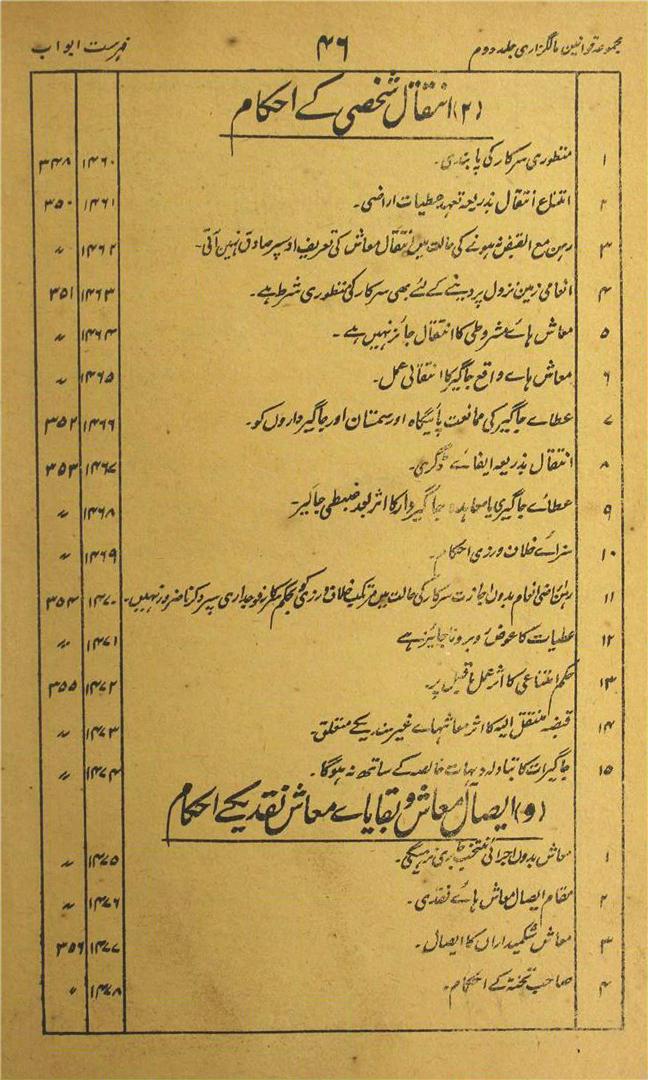 مجموعہ قوانین مالگزاری جلد دوم ۴۶ فہرست ابواب
(۲) انتقال شخصی کے احکام
۱ منظوری سرکار کی پابندی۔ ۱۴۶۰ ۳۴۸
۲ امتناع انتقال بذریعہ تعہد عطیات اراضی۔ ۱۴۶۱ ۳۵۰
۳ رہن مع القبض نہ ہونے کی حالت میں انتقال معاش کی تعریف اوسپر صادق نہیں آتی۔ ۱۴۶۲ 〃
۴ انعامی زمین نزول پر دینے کے لئے بھی سرکار کی منظوری شرط ہے۔ ۱۴۶۳ ۳۵۱
۵ معاش ہائے مشروطی کا انتقال جائز نہیں ہے۔ ۱۴۶۴ 〃
۶ معاش ہاے واقع جاگیر کا انتقالی عمل۔ ۱۴۶۵ 〃
۷ عطاے جاگیر کی ممانعت پائیگاہ اور سمستان اور جاگیرداروں کو۔ ۱۴۶۶ ۳۵۲
۸ انتقال بذریعہ ایفائے ڈگری۔ ۱۴۶۷ ۳۵۳
۹ عطائے جاگیری یا معاہدہ جاگیردار کا اثر بعد ضبطی جاگیر۔ ۱۴۶۸ 〃
۱۰ سزائے خلاف ورزی احکام۔ ۱۴۶۹ 〃
۱۱ رہن اراضی انعام بدون اجازت سرکار کی حالت میں مرتکب خلاف ورزی کو بحکم سرکار فوجداری سپرد کرنا ضرور نہیں۔ ۱۴۷۰ ۳۵۴
۱۲ عطیات کا عوض و بروٹا جائز ہے ۱۴۷۱ 〃
۱۳ حکم امتناعی کا اثر عمل ماقبل پر۔ ۱۴۷۲ ۳۵۵
۱۴ قبضہ منتقل الیہ کا اثر معاشہاے غیر متعلق۔ ۱۴۷۳ 〃
۱۵ جاگیرات کا تبادلہ دیہات خالصہ کے ساتھ نہ ہوگا۔ ۱۴۷۴ 〃
(و) ایصال معاش و بقایاے معاش نقدی کے احکام
۱ معاش بدون اجرائی منتخب جاری نہ ہوسگی۔ ۱۴۷۵ 〃
۲ مقام ایصال معاش ہائے نقدی۔ ۱۴۷۶ 〃
۳ معاش شکمیداران کا ایصال۔ ۱۴۷۷ ۳۵۶
۴ صاحب تختہ کے احکام۔ ۱۴۷۸ 〃